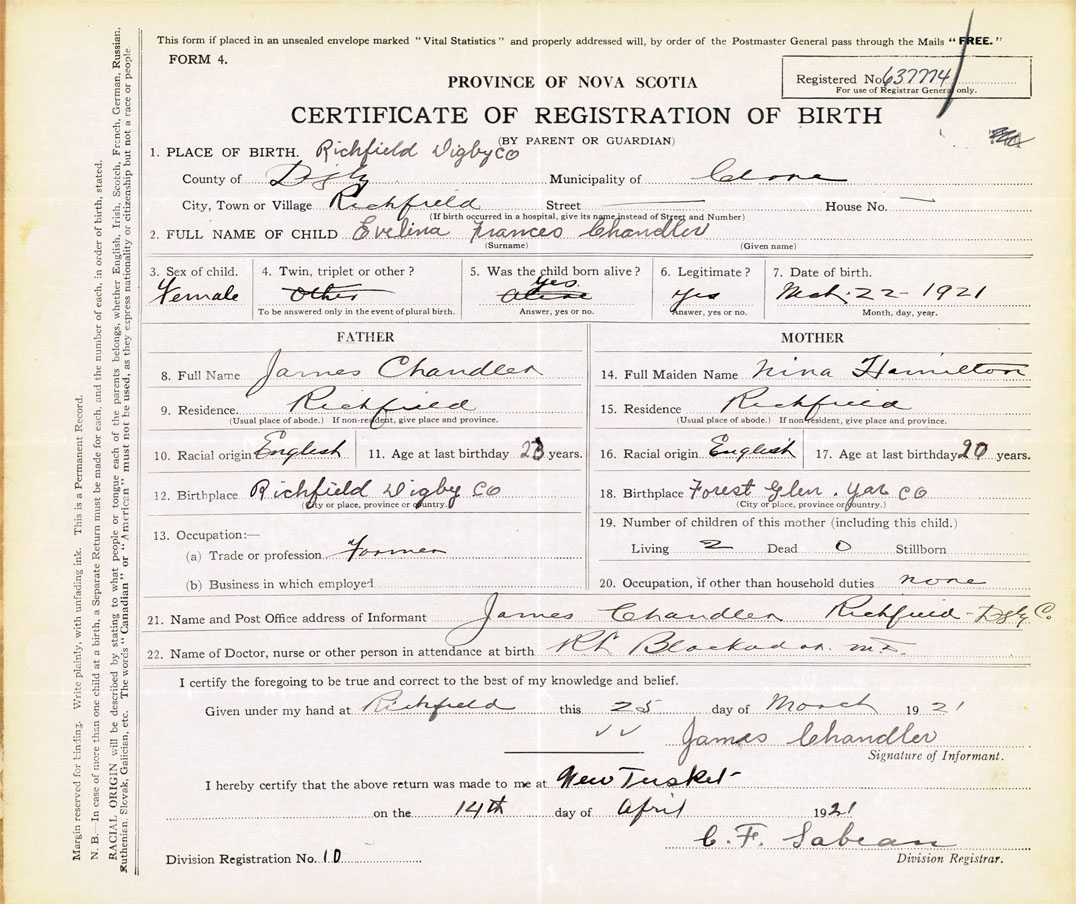 This form if placed in an unsealed envelope marked "Vital Statistics" and properly addressed will, by order of the Postmaster General pass through the Mails "FREE."
FORM 4.
Registered No. 637774
For use of Registrar General only.
PROVINCE OF NOVA SCOTIA
CERTIFICATE OF REGISTRATION OF BIRTH
(BY PARENT OR GUARDIAN)
1. PLACE OF BIRTH. Richfield Digby Co
County of Digby Municipality of Clare
City, Town or Village Richfield Street House No.
(If birth occurred in a hospital, give its name instead of Street and Number)
2. FULL NAME OF CHILD Evelina Frances Chandler
(Surname) (Given name)
3. Sex of child. 4. Twin, triplet or other? 5. Was the child born alive? 6. Legitimate? 7. Date of birth.
Female Other Yes Alive Yes Mch. 22 - 1921
To be answered only in the event of plural birth. Answer, yes or no. Answer, yes or no. Month, day, year.
FATHER MOTHER
8. Full Name James Chandler 14. Full Maiden Name Nina Hamilton
9. Residence. Richfield 15. Residence Richfield
(Usual place of abode.) If non-resident, give place and province. (Usual place of abode.) If non-resident, give place and province.
10. Racial origin English 11. Age at last birthday 23 years. 16. Racial origin English 17. Age at last birthday 20 years.
12. Birthplace Richfield Digby Co 18. Birthplace Forest Glen. Yar Co
(City or place, province or country.) (City or place, province or country.)
13. Occupation:— 19. Number of children of this mother (including this child.)
(a) Trade or profession Farmer Living 2 Dead 0 Stillborn
(b) Business in which employed 20. Occupation, if other than household duties none
21. Name and Post Office address of Informant James Chandler Richfield - Dgby C.
22. Name of Doctor, nurse or other person in attendance at birth Blackadar. M.D.
I certify the foregoing to be true and correct to the best of my knowledge and belief.
Given under my hand at Richfield this 25 day of March 1921
James Chandler
Signature of Informant.
I hereby certify that the above return was made to me at New Tusket
on the 14th day of April 1921
C. F. Sabean
Division Registrar.
Division Registration No. 10
Margin reserved for binding. Write plainly, with unfading ink. This is a Permanent Record.
N. B.—In case of more than one child at a birth, a Separate Return must be made for each, and the number of each, in order of birth, stated.
RACIAL ORIGIN will be described by stating to what people or tongue each of the parents belongs, whether English, Irish, Scotch, French, German, Russian,
Ruthenian, Slovak, Galician, etc. The words "Canadian" or "American" must not be used, as they express nationality or citizenship but not a race or people.